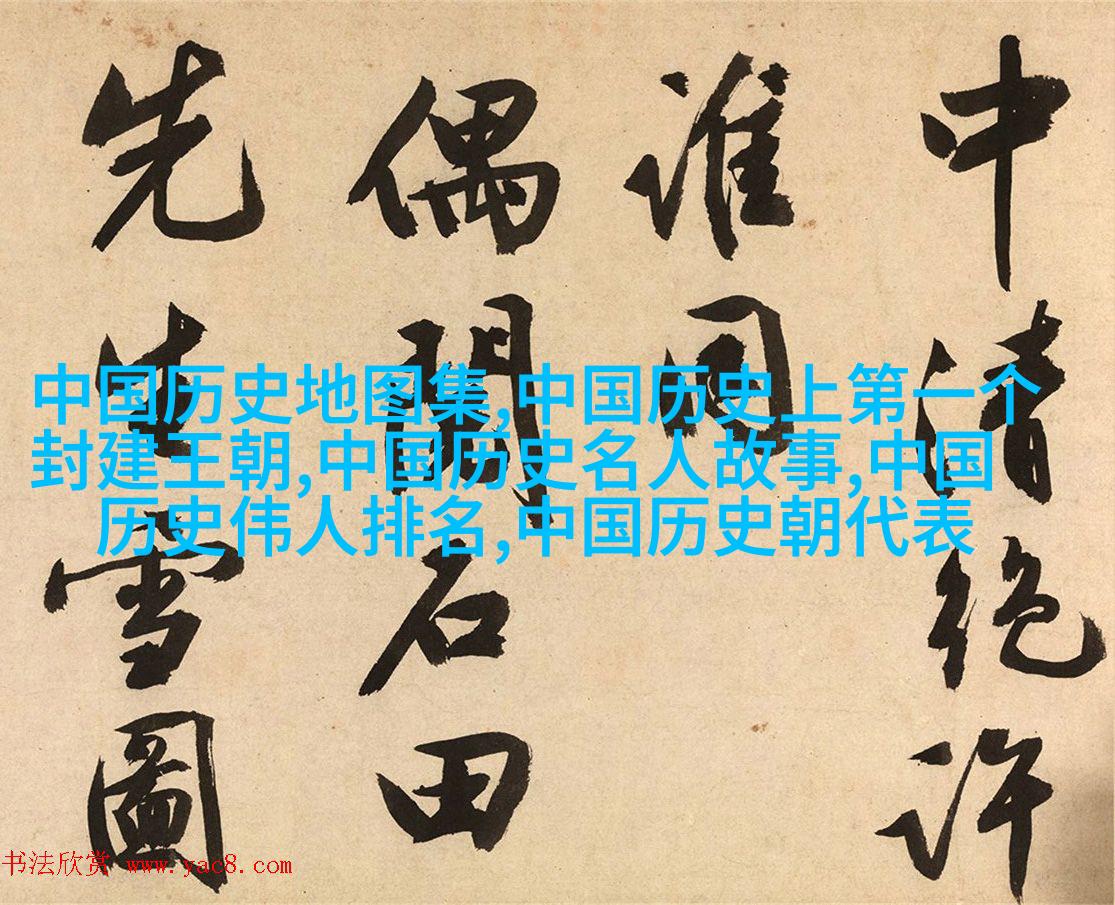 中清絶許
誰同
偶閲石田
先生雪圖
中国历史地图集,中国历史上第一个
封建王朝,中国历史名人故事,中国
历史伟人排名,中国历史朝代表
书法欣赏 www.yac8.com